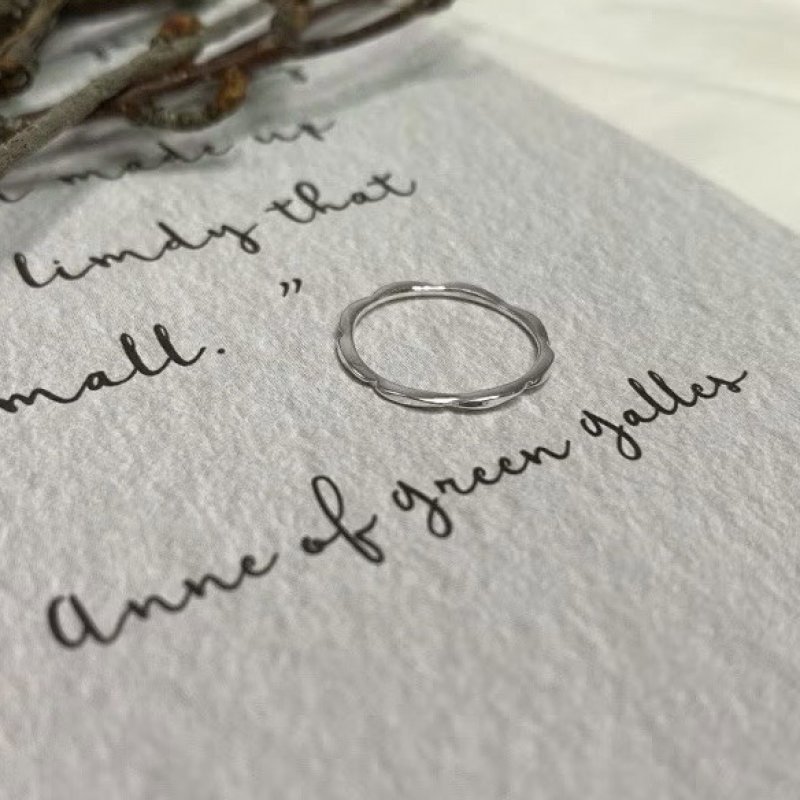 made up
limdy that
mall.”
Anne of green galles